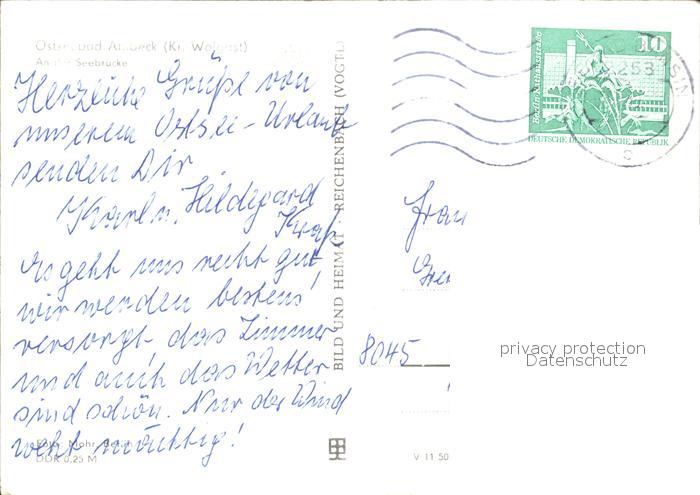 Ostseebad Ahlbeck (Kr. Wolgast)
An der Seebrücke
Herzliche Grüße von
unserem Ostsee-Urlaub
senden Dir
Karl u. Hildegard
Es geht uns recht gut
wir werden bestens
versorgt das Zimmer
und auch das Wetter
sind schön. Nur der Wind
weht mächtig!
Foto: Mohr, Berlin
DDR 0,25 M
BILD UND HEIMAT · REICHENBACH (VOGTL)
V 11 50
10
Berlin, Rathausstraße
DEUTSCHE DEMOKRATISCHE REPUBLIK
253
c
Frau
8045
privacy protection
Datenschutz